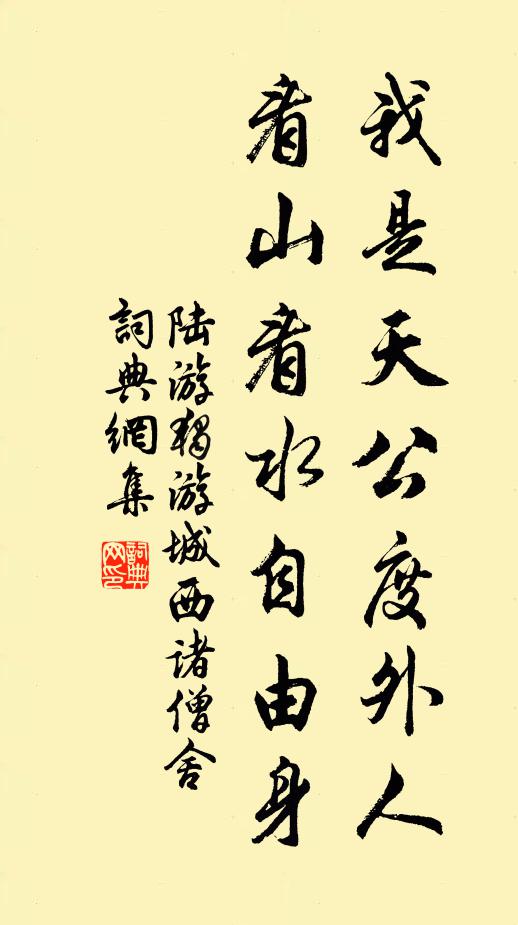 我是天公度外人
看山看水自由身
陆游獨游城西诸僧舍
詞典網集
詞典網印